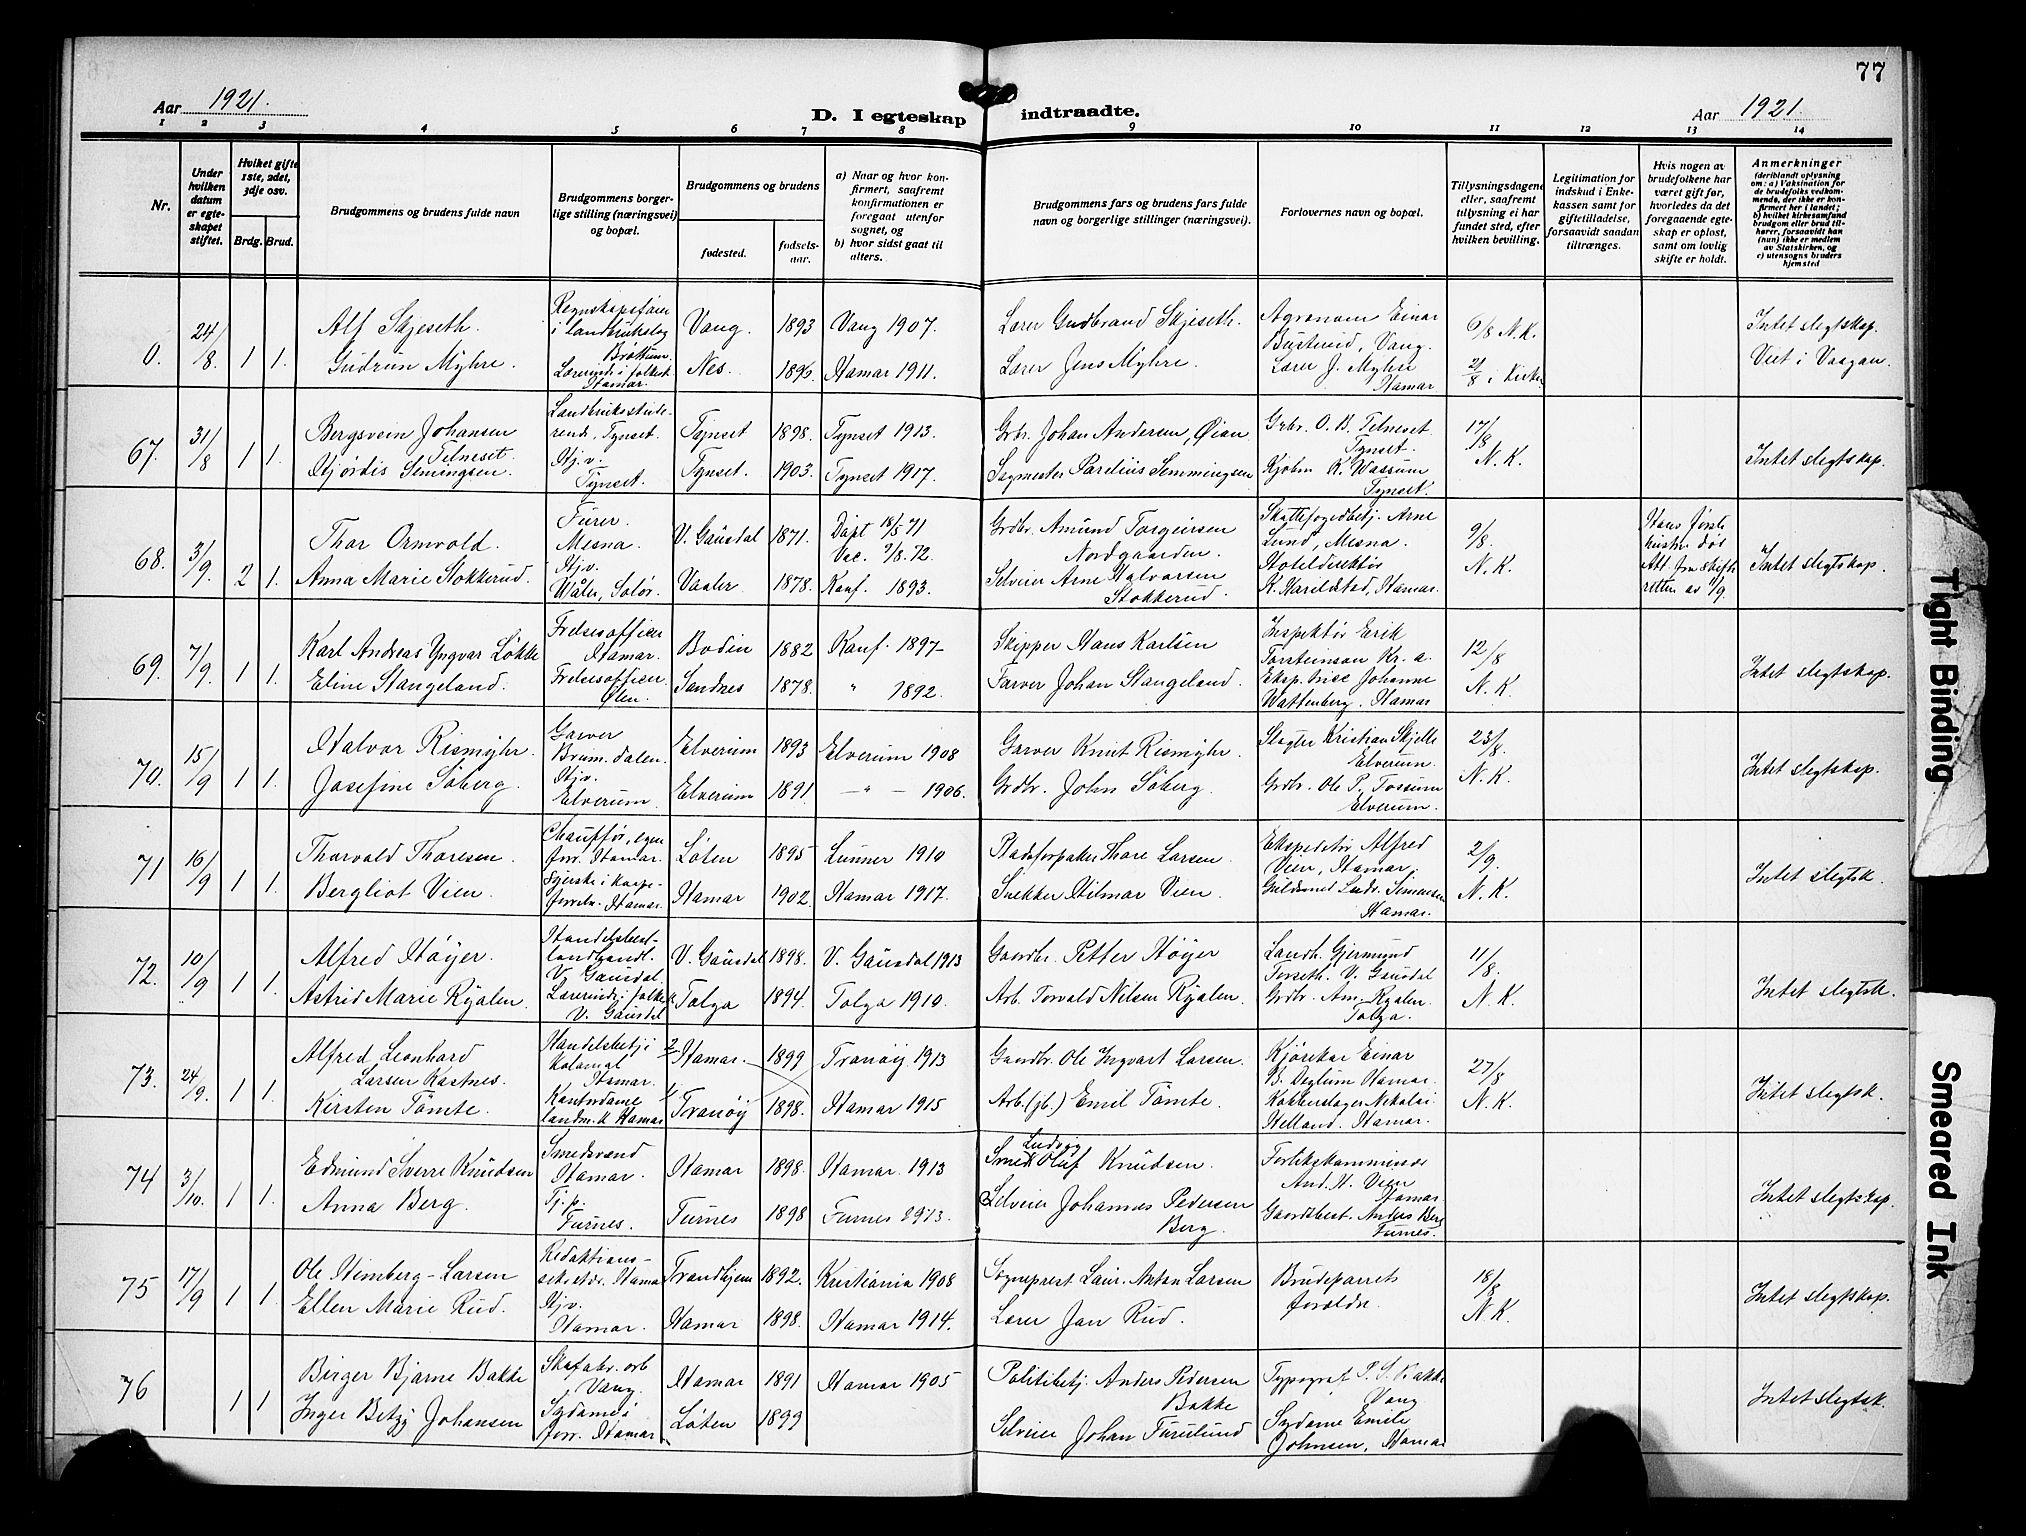 77
Aar 1921.
D. I egteskap indtraadte.
Aar 1921.
1 2 3 4 5 6 7 8 9 10 11 12 13 14
Nr.
Under hvilken datum er egteskapet stiftet.
Hvilket gifte 1ste, 2det, 3dje osv.
Brdg. Brud.
Brudgommens og brudens fulde navn
Brudgommens borgerlige stilling (næringsvei) og bopæl.
Brudgommens og brudens
fødested.
fødselsaar.
a) Naar og hvor konfirmert, saafremt konfirmationen er foregaat utenfor sognet, og
b) hvor sidst gaat til alters.
Brudgommens fars og brudens fars fulde navn og borgerlige stillinger (næringsvei).
Forlovernes navn og bopæl.
Tillysningsdagene eller, saafremt tillysning ei har fundet sted, efter hvilken bevilling.
Legitimation for indskud i Enkekassen samt for giftetilladelse, forsaavidt saadan tiltrænges.
Hvis nogen av brudefolkene har været gift før, hvorledes da det foregaaende egteskap er opløst, samt om lovlig skifte er holdt.
Anmerkninger
(deriblandt oplysning om: a) Vaksination for de brudefolks vedkommende, der ikke er konfirmert her i landet; b) hvilket kirkesamfund brudgom eller brud tilhører, forsaavidt han (hun) ikke er medlem av Statskirken, og c) utensogns bruders hjemsted
0. 24/8 1 1. Alf Skjeseth. Regnskapsfører i landbrukslag Brøttum. Vang. 1893 Vang 1907. Lærer Gudbrand Skjeseth. Agronom Einar Bustveid, Vang. 6/8 N.K. Intet slegtskap.
Gudrun Myhre. Lærerinde i folkesk. Hamar. Nes. 1896 Hamar 1911. Lærer Jens Myhre. Lærer J. Myhre Hamar 21/8 i Kirken Viet i Vaagan.
67. 31/8 1 1. Bergsvein Johansen Telneset Landbruksstuderende, Tynset. Tynset 1898. Tynset 1913. Grbr. Johan Andersen, Øian. Grbr. O. B. Telneset Tynset. 17/8 N.K. Intet slegtskap.
Hjørdis Semingsen. Hjv. Tynset. Tynset. 1903. Tynset 1917. Sagmester Parelius Semmingsen Kjøbm K. Wassum Tynset.
68. 3/9. 2 1. Thor Ormvold. Furer. Mesna. V. Gausdal 1871. Døpt 18/5 71 Vac. 9/8. 72. Grdbr. Amund Torgeirsen Nordgaarden. Skattefogedbetj. Arne Lund, Mesna. 9/8. N.K. Hans første hustru død Att. fra skifteretten av 1/9. Intet slegtskap.
Anna Marie Stokkerud. Hjv. Våler, Solør. Vaaler 1878. Konf. 1893. Selveier Arne Halvorsen Stokkerud. Hoteldirektør K. Harildstad, Hamar.
69. 7/9. 1 1. Karl Andreas Yngvar Løkke Frelsesofficer Hamar. Bodin 1882 Konf. 1897 Skipper Hans Karlsen Inspektør Erik Torsteinson Kr. a. 12/8 N.K. Intet slegtskap.
Eline Stangeland. Frelsesofficer. Ølen. Sandnes 1878. " 1892. Farver Johan Stangeland. Eksp. trise Johanne Wattenberg. Hamar
70. 15/9 1 1. Halvor Rismyhr. Garver Brum. dalen. Elverum 1893 Elverum 1908 Garver Knut Rismyhr. Slagter Kristian Skjelle Elverum. 23/8. N.K. Intet slegtskap.
Josefine Søberg. Hjv. Elverum. Elverum 1891 — " — 1906. Grdbr. John Søberg. Grdbr. Ole P. Fossum Elverum.
71 16/9 1 1. Thorvald Thoresen. Chauffør, egen forr. Hamar. Løten 1895 Lunner 1910 Thore Larsen. Ekspeditør Alfred Vien, Hamar. 2/9. N.K. Intet slegtsk.
Bergliot Vien. Hamar. Hamar 1902 Hamar 1917. Snekker Hilmar Vien. Guldsmed Ludv. Simensen Hamar.
72. 10/9 1 1. Alfred Høyer. V. Gausdal. V. Gausdal 1898. V. Gausdal 1913 Gaardbr. Petter Høyer Landh. Gjermund Forseth. V. Gausdal 11/8. N.K. Intet slegtsk.
Astrid Marie Ryalen. Lærerinde i folkesk. V. Gausdal Tolga 1894. Tolga 1910. Arb. Torvald Nilsen Ryalen. Grdbr. Am. Ryalen. Tolga.
73. 24/9. 1 1. Alfred Leonhard Larsen Kastnes. Handelsbetj i Kolonial Hamar. 2/ Hamar. 1899 Tranøy 1913 Gaardbr. Ole Ingvart Larsen. Kjørekar Einar B. Deglum Hamar. 27/8 N.K. Intet slegtsk.
Kirsten Tømte. Kontordame landm. k Hamar 1/ Tranøy 1898. Hamar 1915 Arb. (jb.) Emil Tømte. Kobberslager Nikolai Helland. Hamar.
74 3/10. 1 1. Edmund Sverre Knudsen Smedsvend Hamar. Hamar 1898. Hamar. 1913 Smed Ludvig Olaf Knudsen. Forlikskommissær And. H. Vien Hamar. Intet slegtskap.
Anna Berg. Tj. p. Furnes. Furnes 1898 Furnes 1913. Selveier Johannes Pedersen Berg. Gaardsbest. Anders Berg Furnes.
75 17/9 1 1. Ole Himberg-Larsen Redaktionssekretær. Hamar Trondhjem 1892. Kristiania 1908 Sogneprest Laur. Anton Larsen Brudeparrets forældre. 18/8 N.K. Intet slegtskap.
Ellen Marie Rud. Hjv. Hamar. Hamar 1898. Hamar 1914. Lærer Jan Rud.
76 1 1. Birger Bjarne Bakke Skofabr. arb Vang. Hamar 1891 Hamar 1905 Politibetj. Anders Pedersen Bakke Typograf P. S. Bakke Vang Intet slegtsk.
Inger Betzy Johansen Sydame i forr. Hamar. Løten 1899 Selveier Johan Furulund Sydame Emilie Johnsen, Hamar
Tight Binding
Smeared Ink